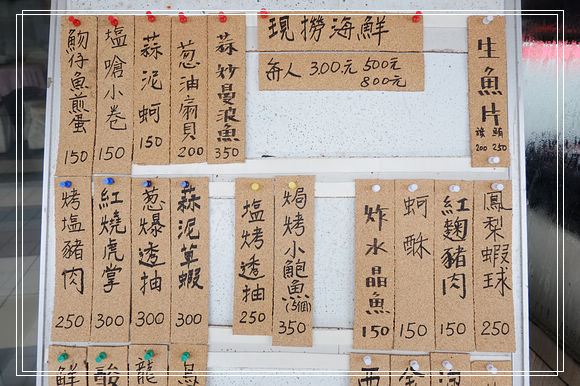 魩仔魚煎蛋
150
塩嗆小卷
150
蒜泥蚵
150
葱油扇貝
200
蒜炒曼波魚
350
現撈海鮮
每人 300元 500元
800元
生魚片
200 250
烤塩豬肉
250
紅燒虎掌
300
葱爆透抽
300
蒜泥草蝦
300
塩烤透抽
250
焗烤小鮑魚(5個)
350
炸水晶魚
150
蚵酥
150
紅麴豬肉
150
鳳梨蝦球
250
鮮
酸
龍
西